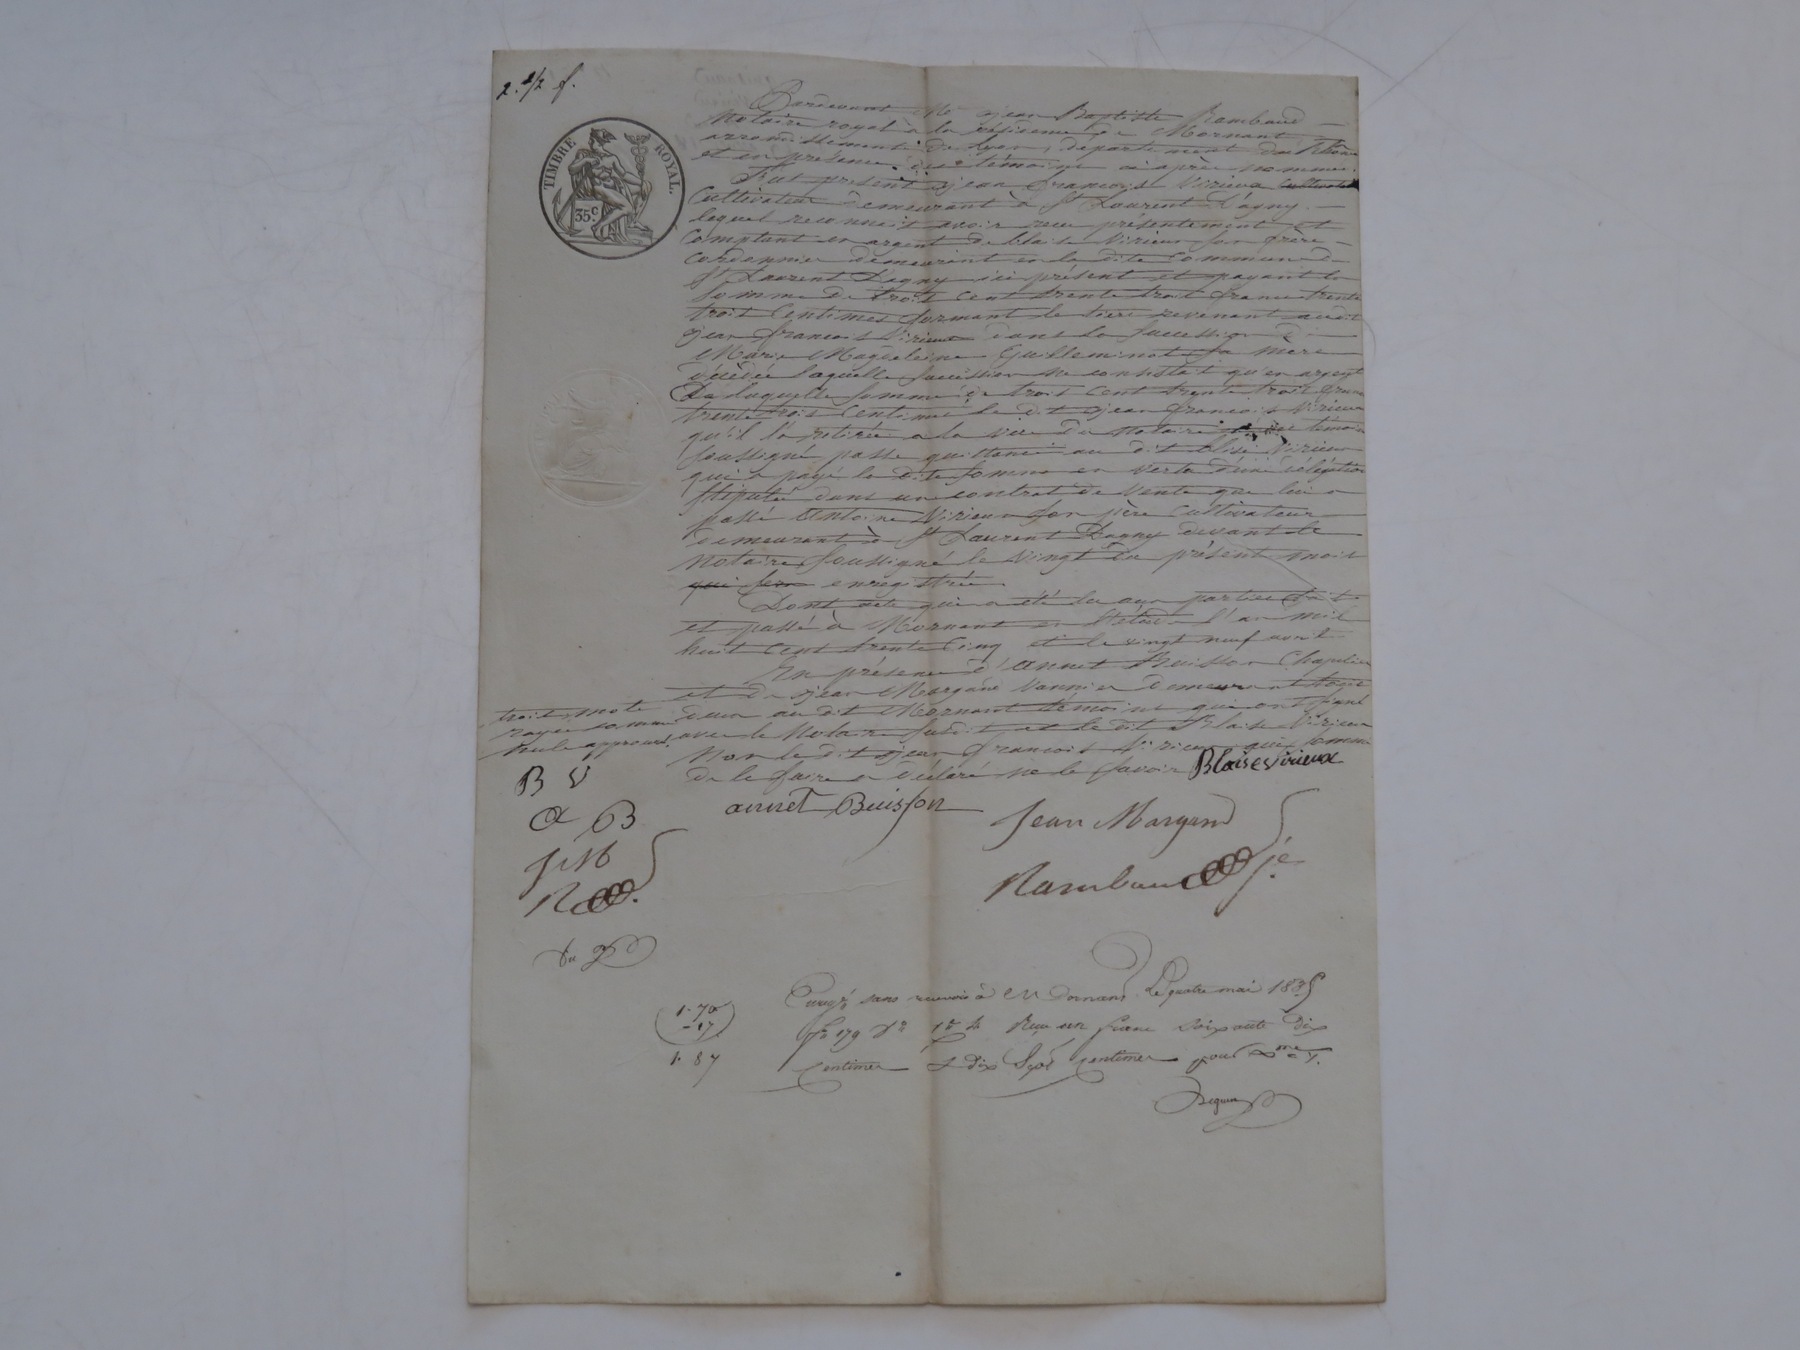 2. 1/2 f.
TIMBRE ROYAL.
35 c.
Pardevant Me jean Baptiste Rambaud
Notaire royal à la résidence de Mornant
arrondissement de Lyon, département du Rhône
et en présence des témoins ci après nommés
Fut présent jean François Virieux cultivateur
Cultivateur demeurant à St Laurent D'agny
lequel reconnait avoir reçu présentement et
Comptant en argent de blaise Virieux son frère
cordonnier demeurant en la dite commune de
St Laurent D'agny ici présent et payant la
somme de trois cent trente trois francs trente
trois Centimes formant le tiers revenant audit
jean françois Virieux dans la succession de
Marie Magdeleine Guilleminot sa mère
décédée laquelle succession ne consistait qu'en argent
De laquelle somme de trois cent trente trois francs
trente trois Centimes le dit jean françois Virieux
qu'il l'a retirée a la vue du Notaire témoins
soussigné passe quittance au dit Blaise Virieux
qui a payé la dite somme en vertu d'une délégation
stipulée dans un contrat de vente que lui a
passé Antoine Virieux son père cultivateur
demeurant à St Laurent Dagny devant le
Notaire soussigné le vingt du présent mois
qui sera enregistrée
Dont acte qui a été lu aux parties fait
et passé à Mornant en l'étude l'an mil
huit cent trente Cinq et le vingt neuf avril
En présence d'annet Buisson Chapelier
et de jean Margand Vannier demeurant tous
deux au dit Mornant témoins qui ont signé
avec le Notaire susdit et le dit Blaise Virieux
Non le dit jean françois Virieux qui sommé
de le faire a déclaré ne le savoir Blaise Virieux
trois mots
rayés comme
nuls approuvé.
B V
a B
J M
R
annet Buisson
Jean Margand
Rambaud
1.70
-17
1.87
Enregé sans renvois à Mornant Le quatre mai 1835
fo 179 Reçu un franc soixante dix
Centimes & dix Sept centimes pour